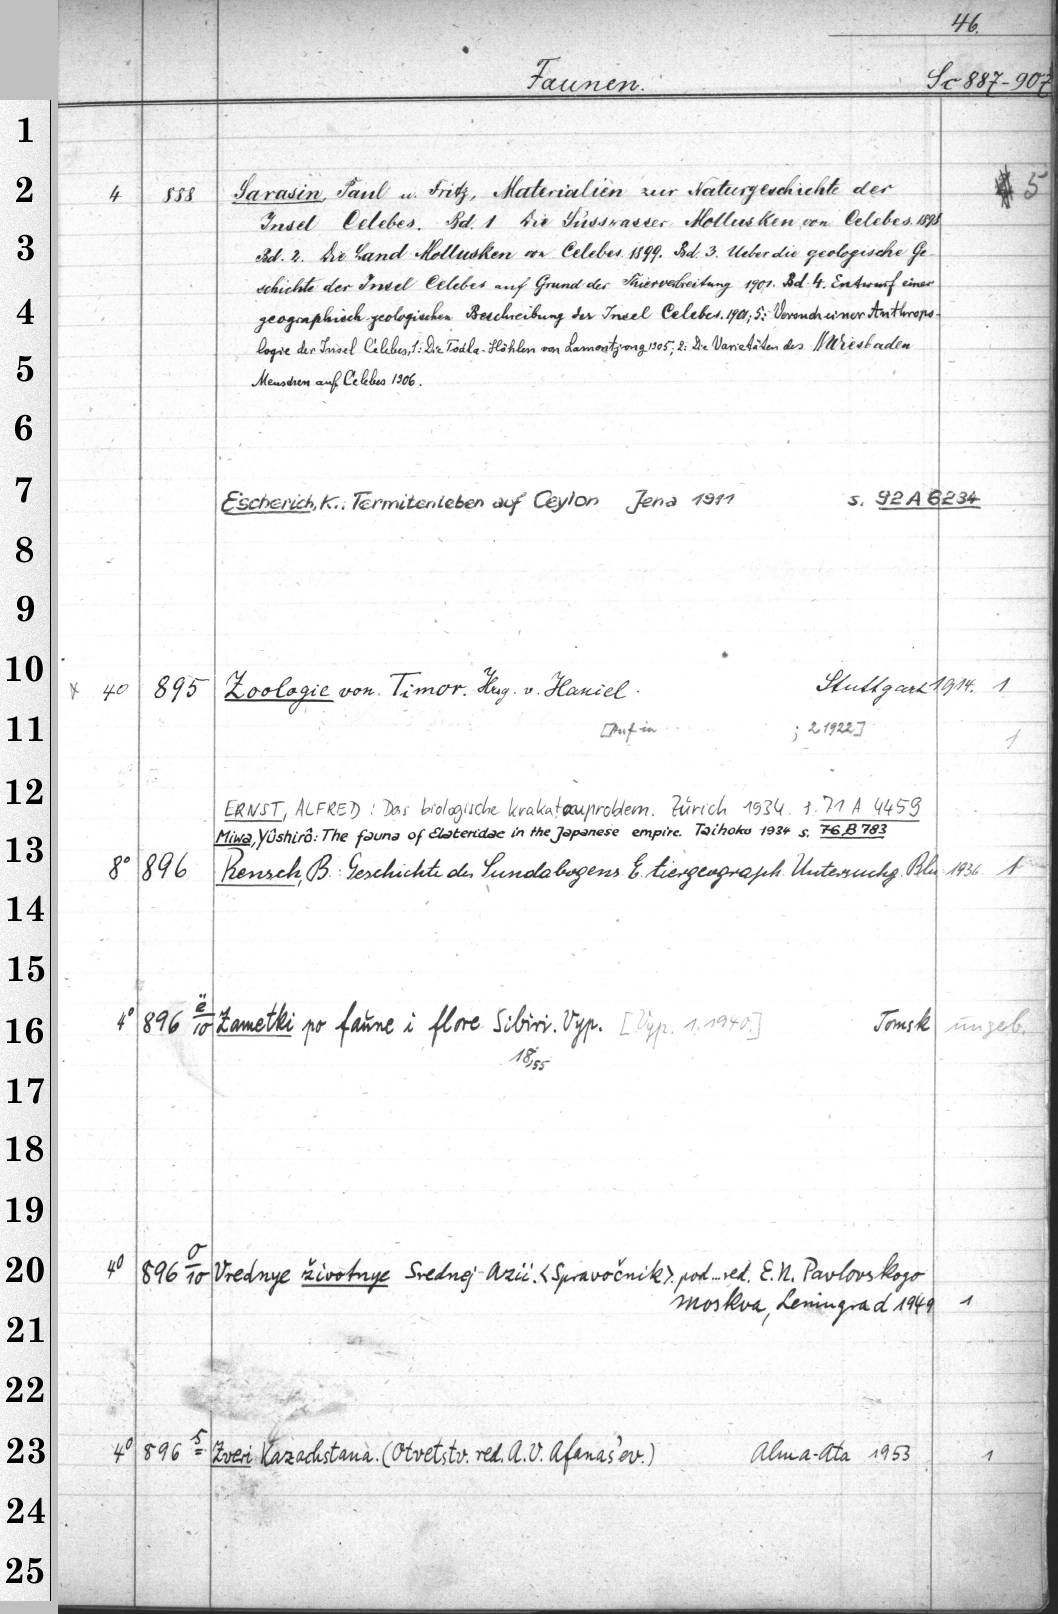 46.
Faunen. Sc 887-907
1
2
4 888 Sarasin, Paul u. Fritz, Materialien zur Naturgeschichte der 5
Insel Celebes. Bd. 1 Die Süsswasser Mollusken von Celebes. 1898
3
Bd. 2. Die Land Mollusken von Celebes 1899. Bd. 3. Ueber die geologische Ge-
schichte der Insel Celebes auf Grund der Thierverbreitung 1901. Bd. 4. Entwurf einer
4
geographisch-geologischen Beschreibung der Insel Celebes. 1901; 5.: Versuch einer Anthropo-
logie der Insel Celebes, 1: Die Toála-Höhlen von Lamontjong 1905; 2: Die Varietäten des // Wiesbaden
5
Menschen auf Celebes 1906.
6
7
Escherich, K.: Termitenleben auf Ceylon Jena 1911 s. 92 A 6234
8
9
10
x 40 895 Zoologie von Timor. Hrg. v. Haniel. Stuttgart 1914. 1
11
; 2 1922] 1
12
ERNST, ALFRED: Das biologische Krakatauproblem. Zürich 1934. s. 71 A 4459
Miwa, Yûshirô: The fauna of Elateridae in the Japanese empire. Taihoku 1934 s. 76 B 783
13
8° 896 Rensch, B.: Geschichte des Sundabogens. E. tiergeograph. Untersuchg. Bln 1936 1
14
15
16
4° 896 ë/10 Zametki po faune i flore Sibiri. Vyp. [Vyp. 1. 1940.] Tomsk ungeb.
18,55
17
18
19
20
4° 896 σ/10 Vrednye životnye Srednej Azii. <Spravočnik>. pod. red. E. N. Pavlovskogo
Moskva, Leningrad 1949 1
21
22
23
4° 896 5 Zveri Kazachstana. (Otvetstv. red. A. V. Afanas'ev.) Alma-Ata 1953 1
24
25